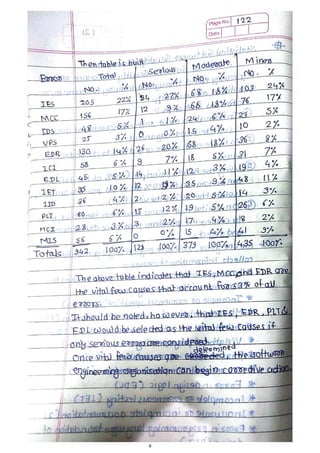 Page No. 122
Date
Then table is built
Error Total Serious Moderate Minor
No. % No. % No. % No. %
IES 205 22% 34 27% 68 18% 103 24%
MCC 156 17% 12 9% 68 18% 76 17%
IDS 48 5% 1 1% 24 6% 23 5%
VPS 25 3% 0 0% 15 4% 10 2%
EDR 130 14% 26 20% 68 18% 36 8%
ICI 58 6% 9 7% 18 5% 31 7%
EDL 45 5% 14 11% 12 3% 19 4%
IET 95 10% 12 9% 35 9% 48 11%
IID 36 4% 2 2% 20 5% 14 3%
PLT 60 6% 15 12% 19 5% 26 6%
HCI 28 3% 3 2% 17 4% 8 2%
MIS 56 6% 0 0% 15 4% 41 9%
Totals 942 100% 128 100% 379 100% 435 100%
The above table indicates that IES, MCC and EDR are
the vital few causes that account for 53% of all
errors.
It should be noted, however, that IES, EDR, PLT &
EDL would be selected as the vital few causes if
only serious errors are considered.
determined
Once vital few causes are, the software
engineering organisation can begin corrective action.